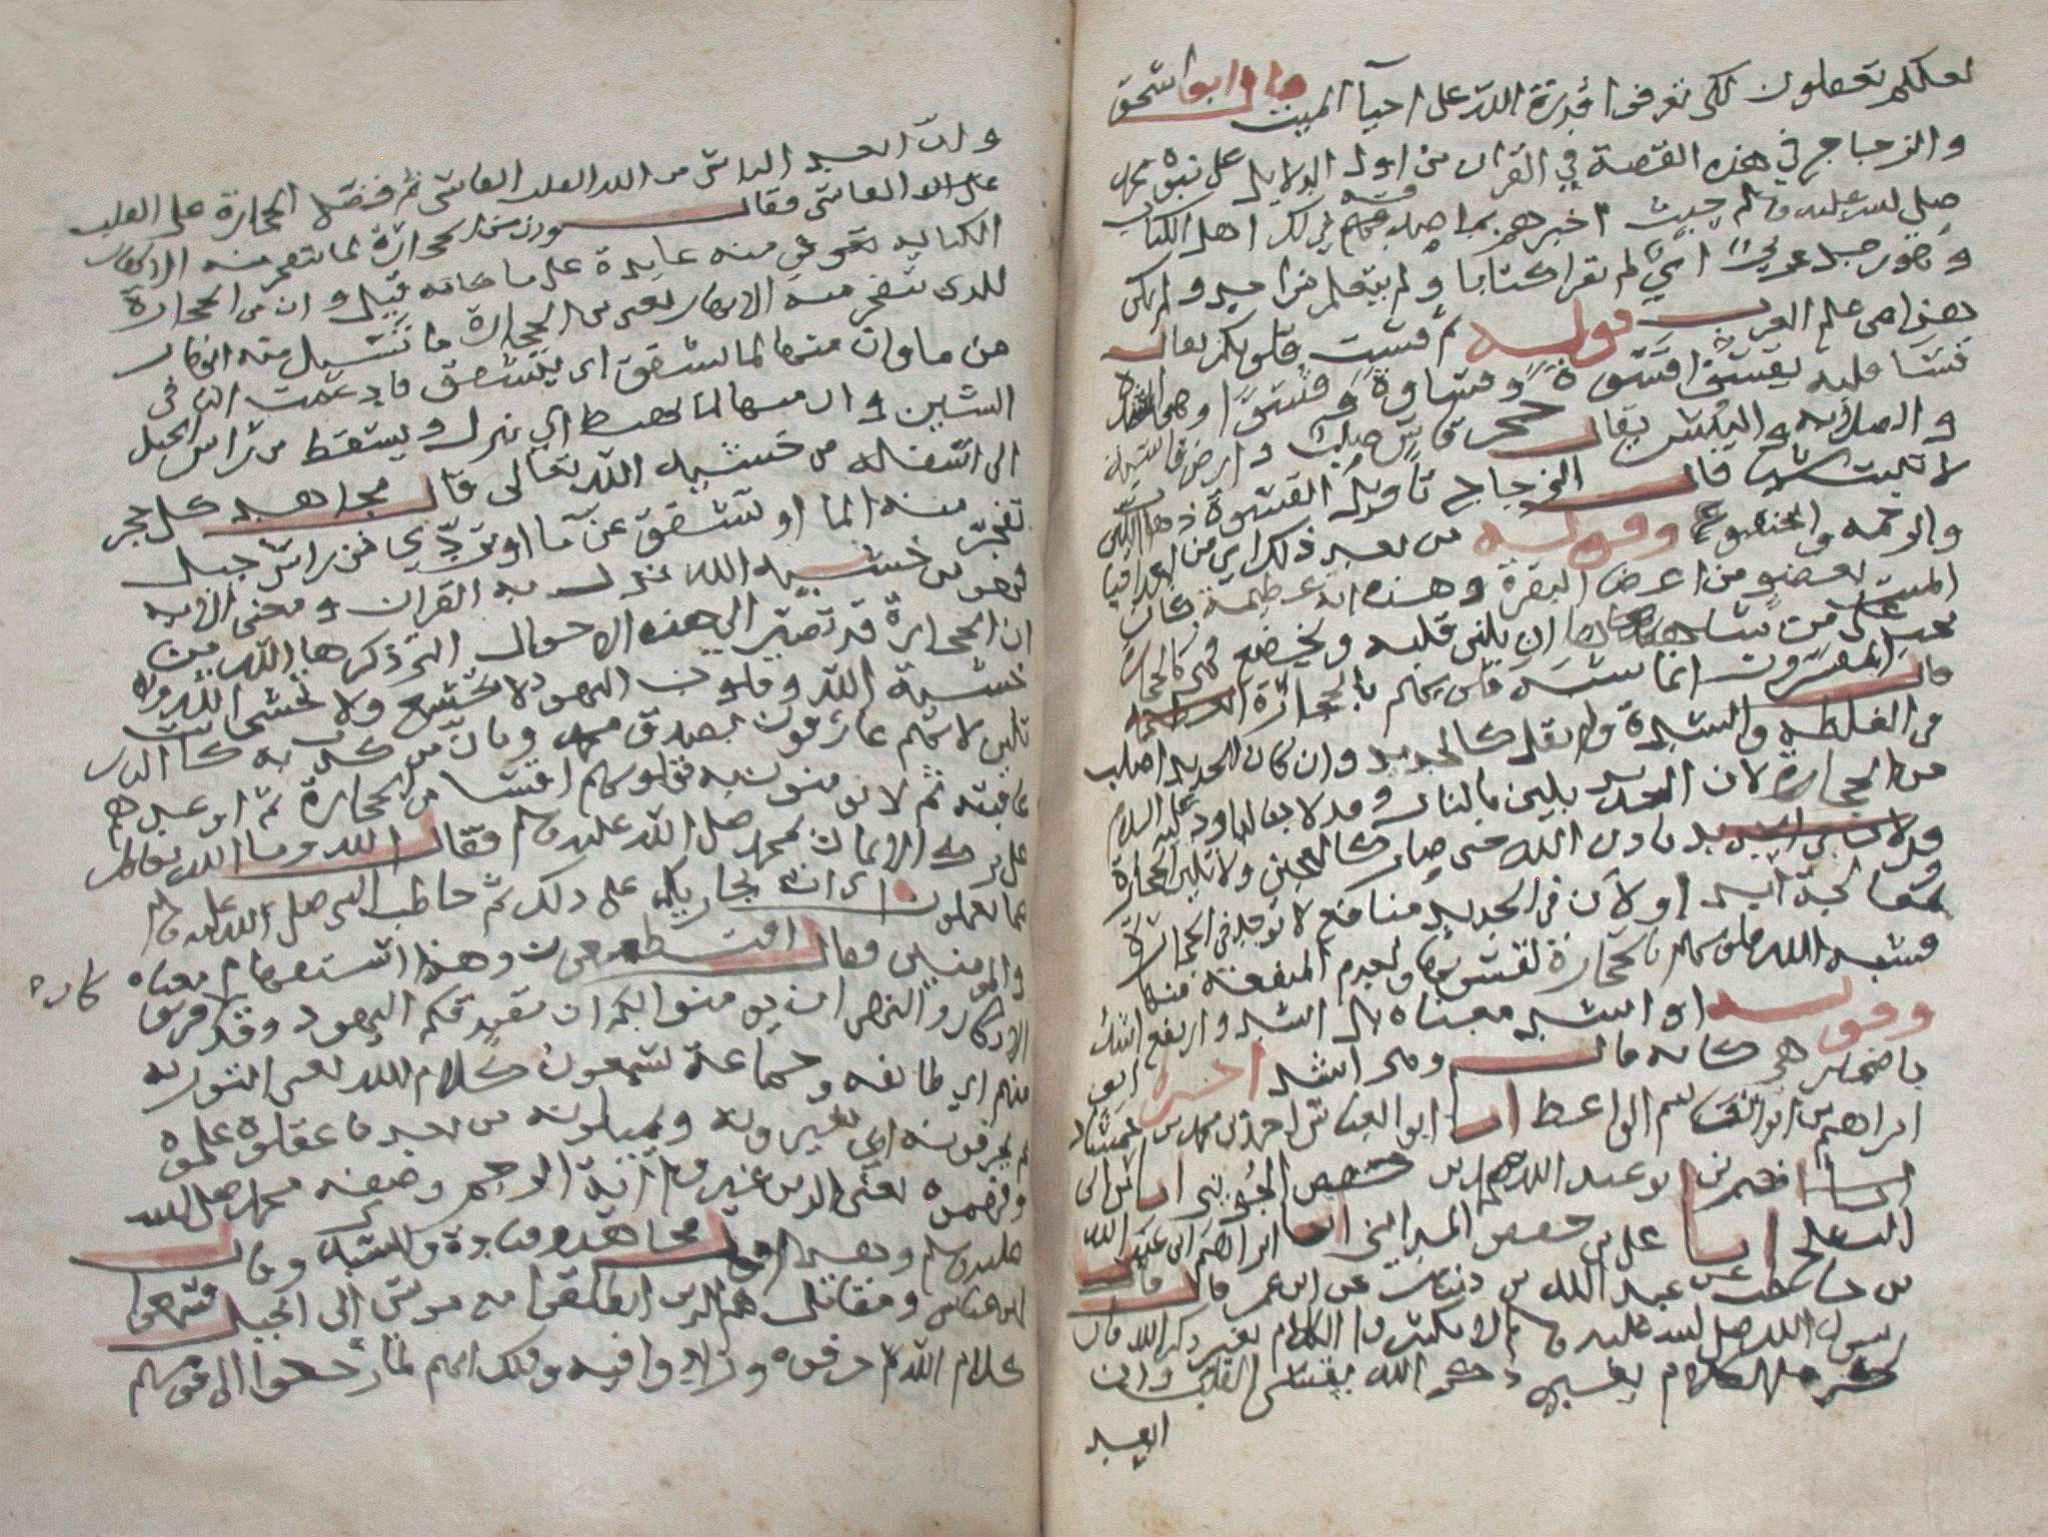 لعلكم تعقلون لكى تعرفوا قدرة الله على احيآ الميت قال ابو اسحق
والزجاج في هذه القصة في القران من اول الدلايل على نبوة محمد
صلى الله عليه وسلم حيث اخبرهم بما اهل الكتاب
وهو رجل عربي امي لم يقرا كتابا ولم يتعلم من احد ولم يكن
هذا من علم العرب قوله ثم قست قلوبكم يقال
قسا قلبه يقسوا قسوة وقساوة وقسوا وهى الشدة
والصلابه واليبس يقال حجر قاس صلب وارض قاسية
لا تنبت شيا قال الزجاج تاويل القسوة ذهاب اللين
والرحمه والخشوع وقوله من بعد ذلك اي من بعد احيا
الميت بعضو من اعضا البقرة وهذه اية عظيمة كان
يجب على من شاهدها ان يلين قلبه ويخضع فهى كالحجارة
قال المفسرون انما شبه قلوبهم بالحجارة
في الغلظه والشدة ولم يقل كالحديد وان كان الحديد اصلب
من الحجارة لان الحديد يلين بالنار وقد لان لداود عليه السلام
باذن الله حتى صار كالعجين ولا تلين الحجارة
ابدا ولان فى الحديد منافع لا توجد فى الحجارة
فشبه الله قلوبهم بالحجارة لقسوتها ولعدم المنفعة منها
وقوله او اشد معناه بل اشد وارتفع اشد
باضمار هى كانه قال وهى اشد اخبرنا ابو
ابراهيم بن ابو القاسم الواعظ ابو العباس احمد بن محمد بن
ابو عبد الله محمد بن حفص
على بن حفص المدايني ابراهيم بن عبد الله
بن حاطب عن عبد الله بن دينار عن ابن عمر قال قال
رسول الله صلى الله عليه وسلم لا تكثروا الكلام بغير ذكر الله فان
كثرة الكلام بغير ذكر الله يقسى القلب وان
البعيد
وان ابعد الناس من الله القلب القاسى ثم فضل الحجارة على القلب
القاسى فقال وان من الحجارة لما يتفجر منه الانهار
الكنايه فى منه عايدة على ما كانه قيل وان من الحجارة
للذى يتفجر منه الانهار يعنى من الحجارة ما تسيل منه انهار
من ما وان منها لما يشقق اي يتشقق فادغمت التا فى
الشين وان منها لما يهبط اي ينزل ويسقط من راس الجبل
الى اسفله من خشيه الله تعالى قال مجاهد كل حجر
تفجر منه الما او تشقق عن ما او تردى من راس جبل
فهو من خشيه الله نزل به القران ومعنى الايه
ان الحجارة قد تصير الى هذه الاحوال التى ذكرها الله من
خشية الله وقلوب اليهود لا تخشع ولا تخشى الله ولا
تلين لانهم عارفون بصدق محمد
ثم لا يومنون به فقلوبهم اقسا من الحجارة ثم اوعدهم
على ترك الايمان بمحمد صلى الله عليه وسلم فقال وما الله بغافل
عما تعملون اى انه يجازيكم على ذلك ثم خاطب النبى صلى الله عليه وسلم
والمومنين فقال افتطمعون وهذا استفهام معناه
الانكار والنهى ان يومنوا لكم ان تصدقكم اليهود وقد كان فريق
منهم اي طائفه وجماعة يسمعون كلام الله يعنى التوريه
ثم يحرفونه اي يغيرونه ويبدلونه من بعد ما عقلوه علموه
وفهموه يعنى الذين غيروا اية الرجم وصفه محمد صلى الله
عليه وسلم وهذا قول مجاهد وقتادة والسدى وقال
ابن عباس ومقاتل هم الذين انطلقوا مع موسى الى الجبل فسمعوا
كلام الله ثم حرفوه وزادوا فيه وذلك انهم لما رجعوا الى قومهم